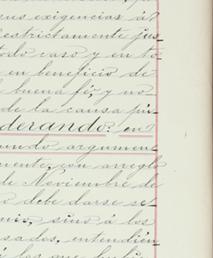 sus exigencias al
estrictamente jus-
todo caso y en to
en beneficio de
buena fé, y no
de la causa pú-
derando: en
undo argumen
uente, con arreglo
de Noviembre de
o debe darse se-
sino á los
sados, entendién